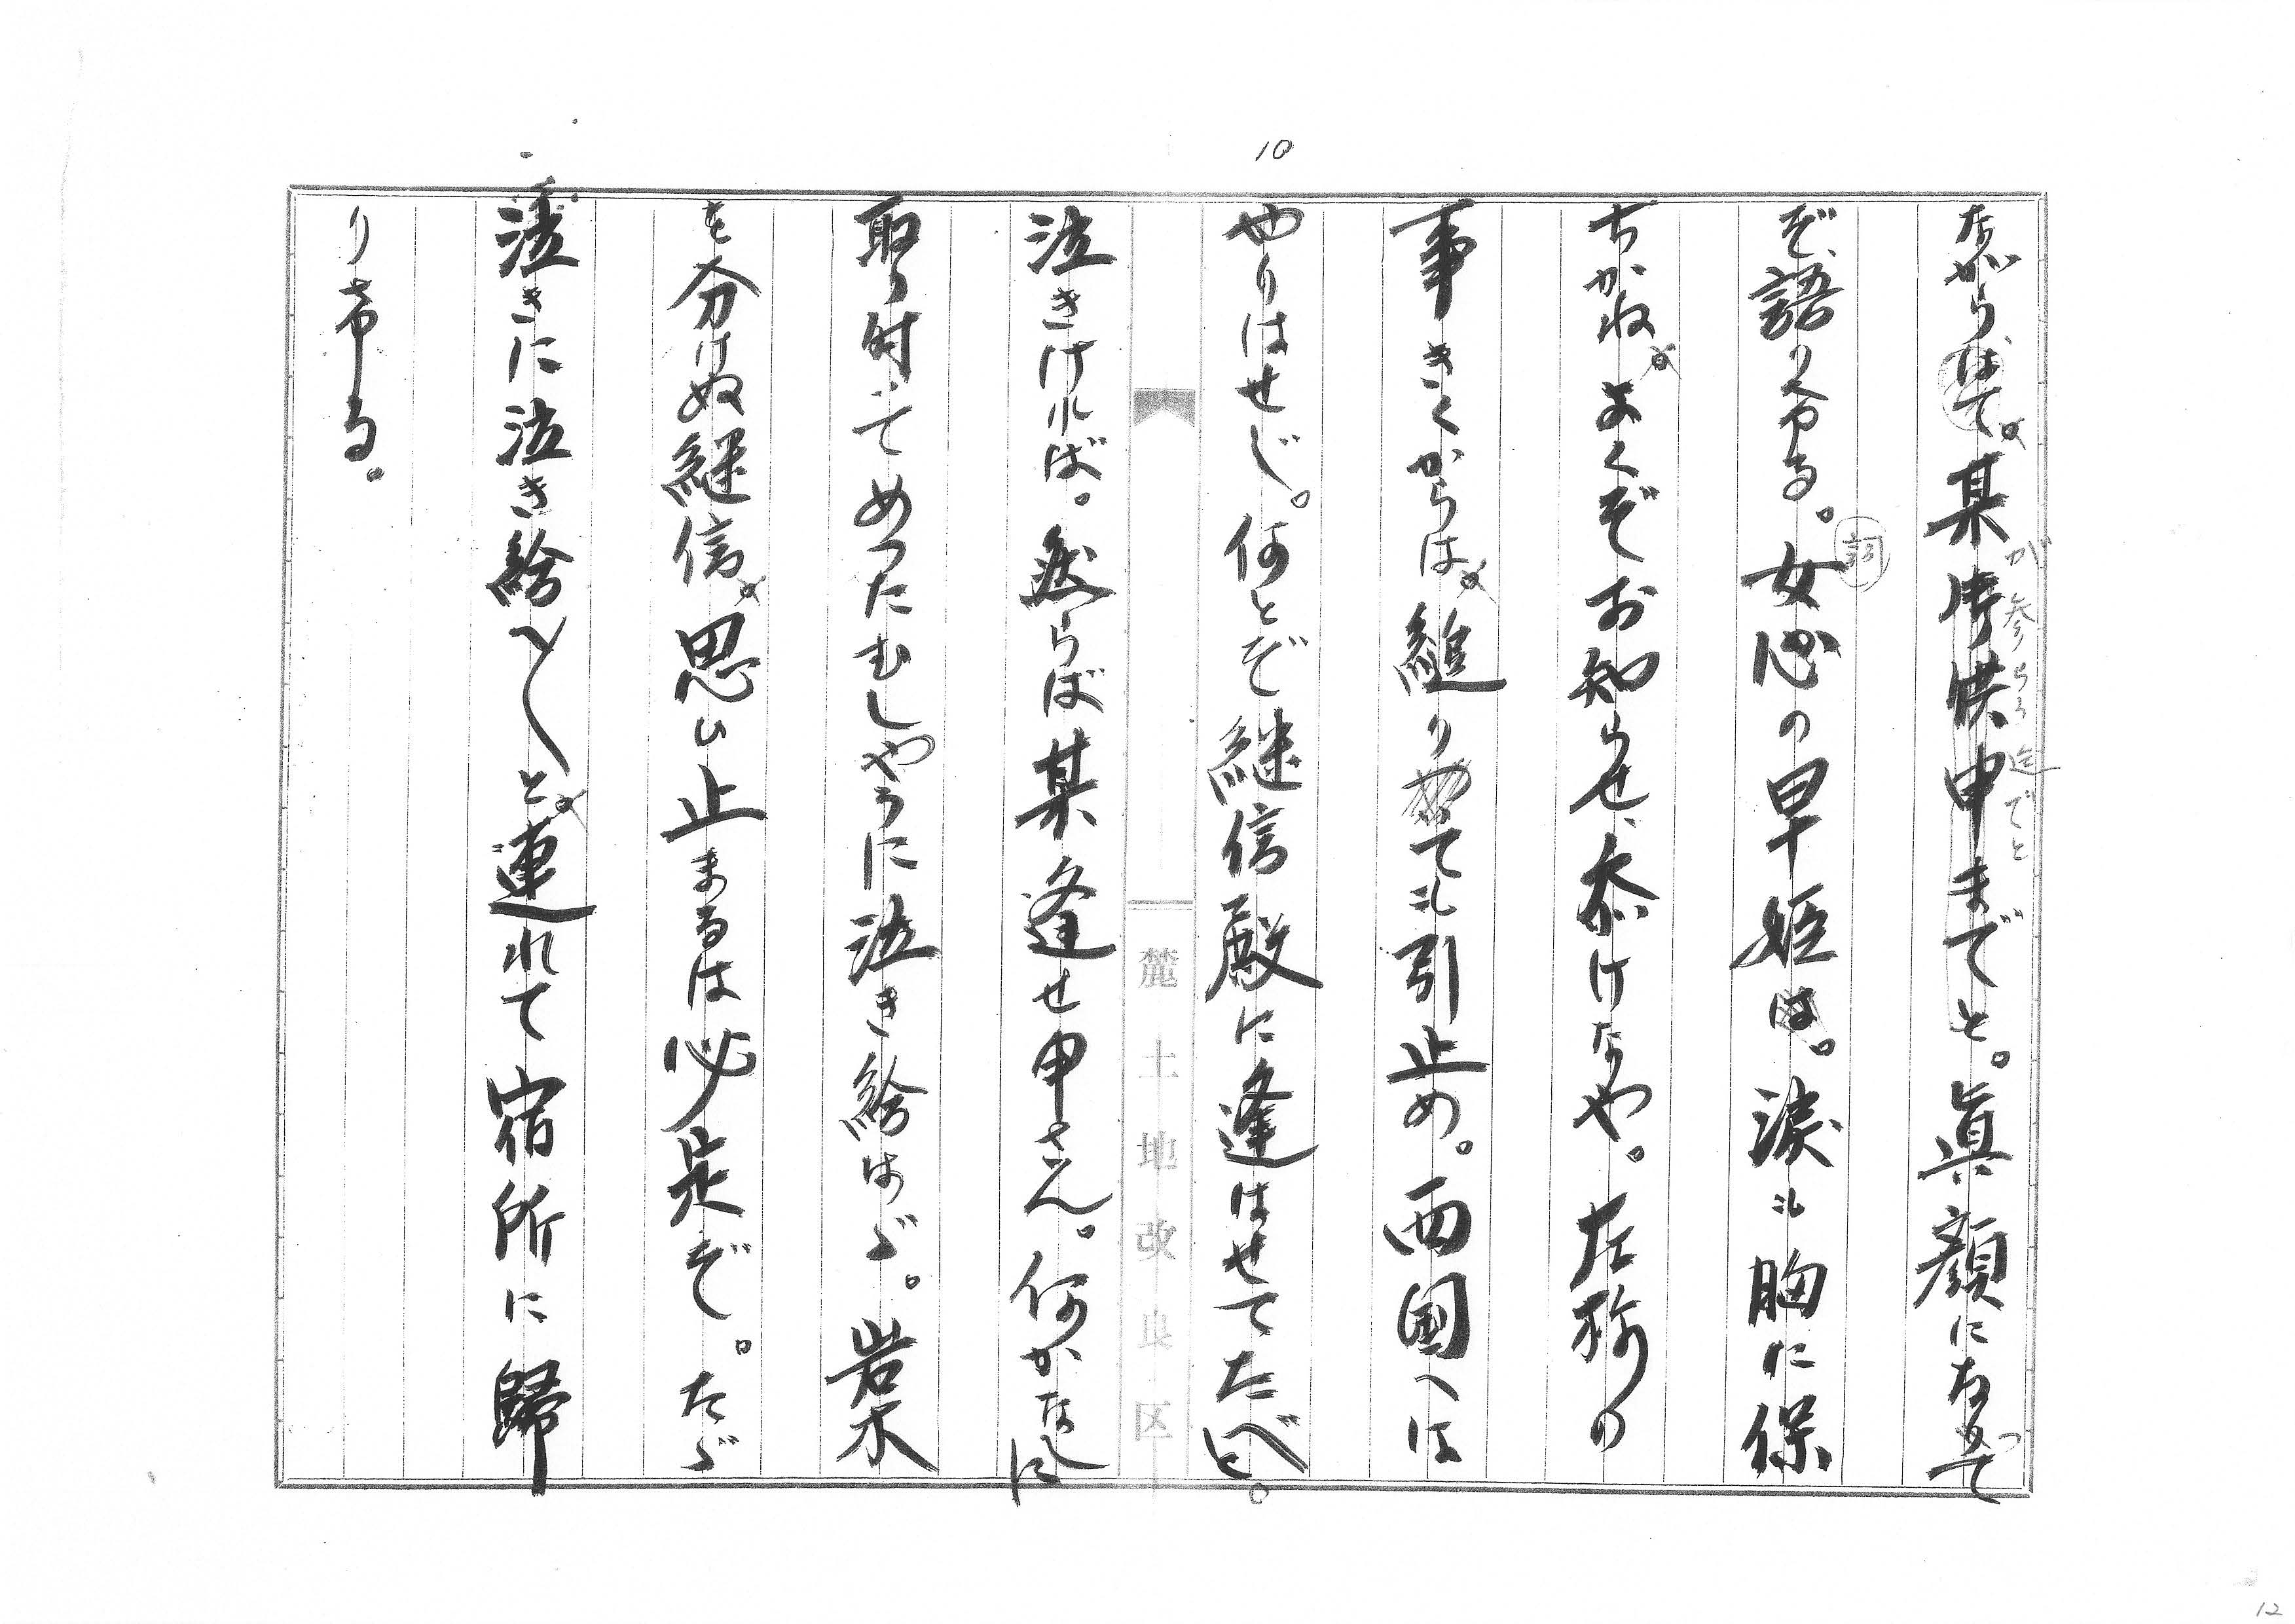 10
ながらはて。某御供申までと。眞顔になつて
が参らう迄でと
ぞ語りける。女心の早姫は。涙も胸に保
詞
ちかね。よくぞお知らせ、忝けなや。左称の
事きくからは。縋りても引止め。西国へは
やりはせじ。何とぞ継信殿に逢はせてたべと。
泣きければ。然らば某逢せ申さん。何かなしに
取り付いてめつたむしやうに泣き給はゞ。岩木
を分けぬ継信。思ひ止まるは必定ぞ。たゞ
泣きに泣き給へ〱と。連れて宿所に歸
りける。
麓土地改良区
12